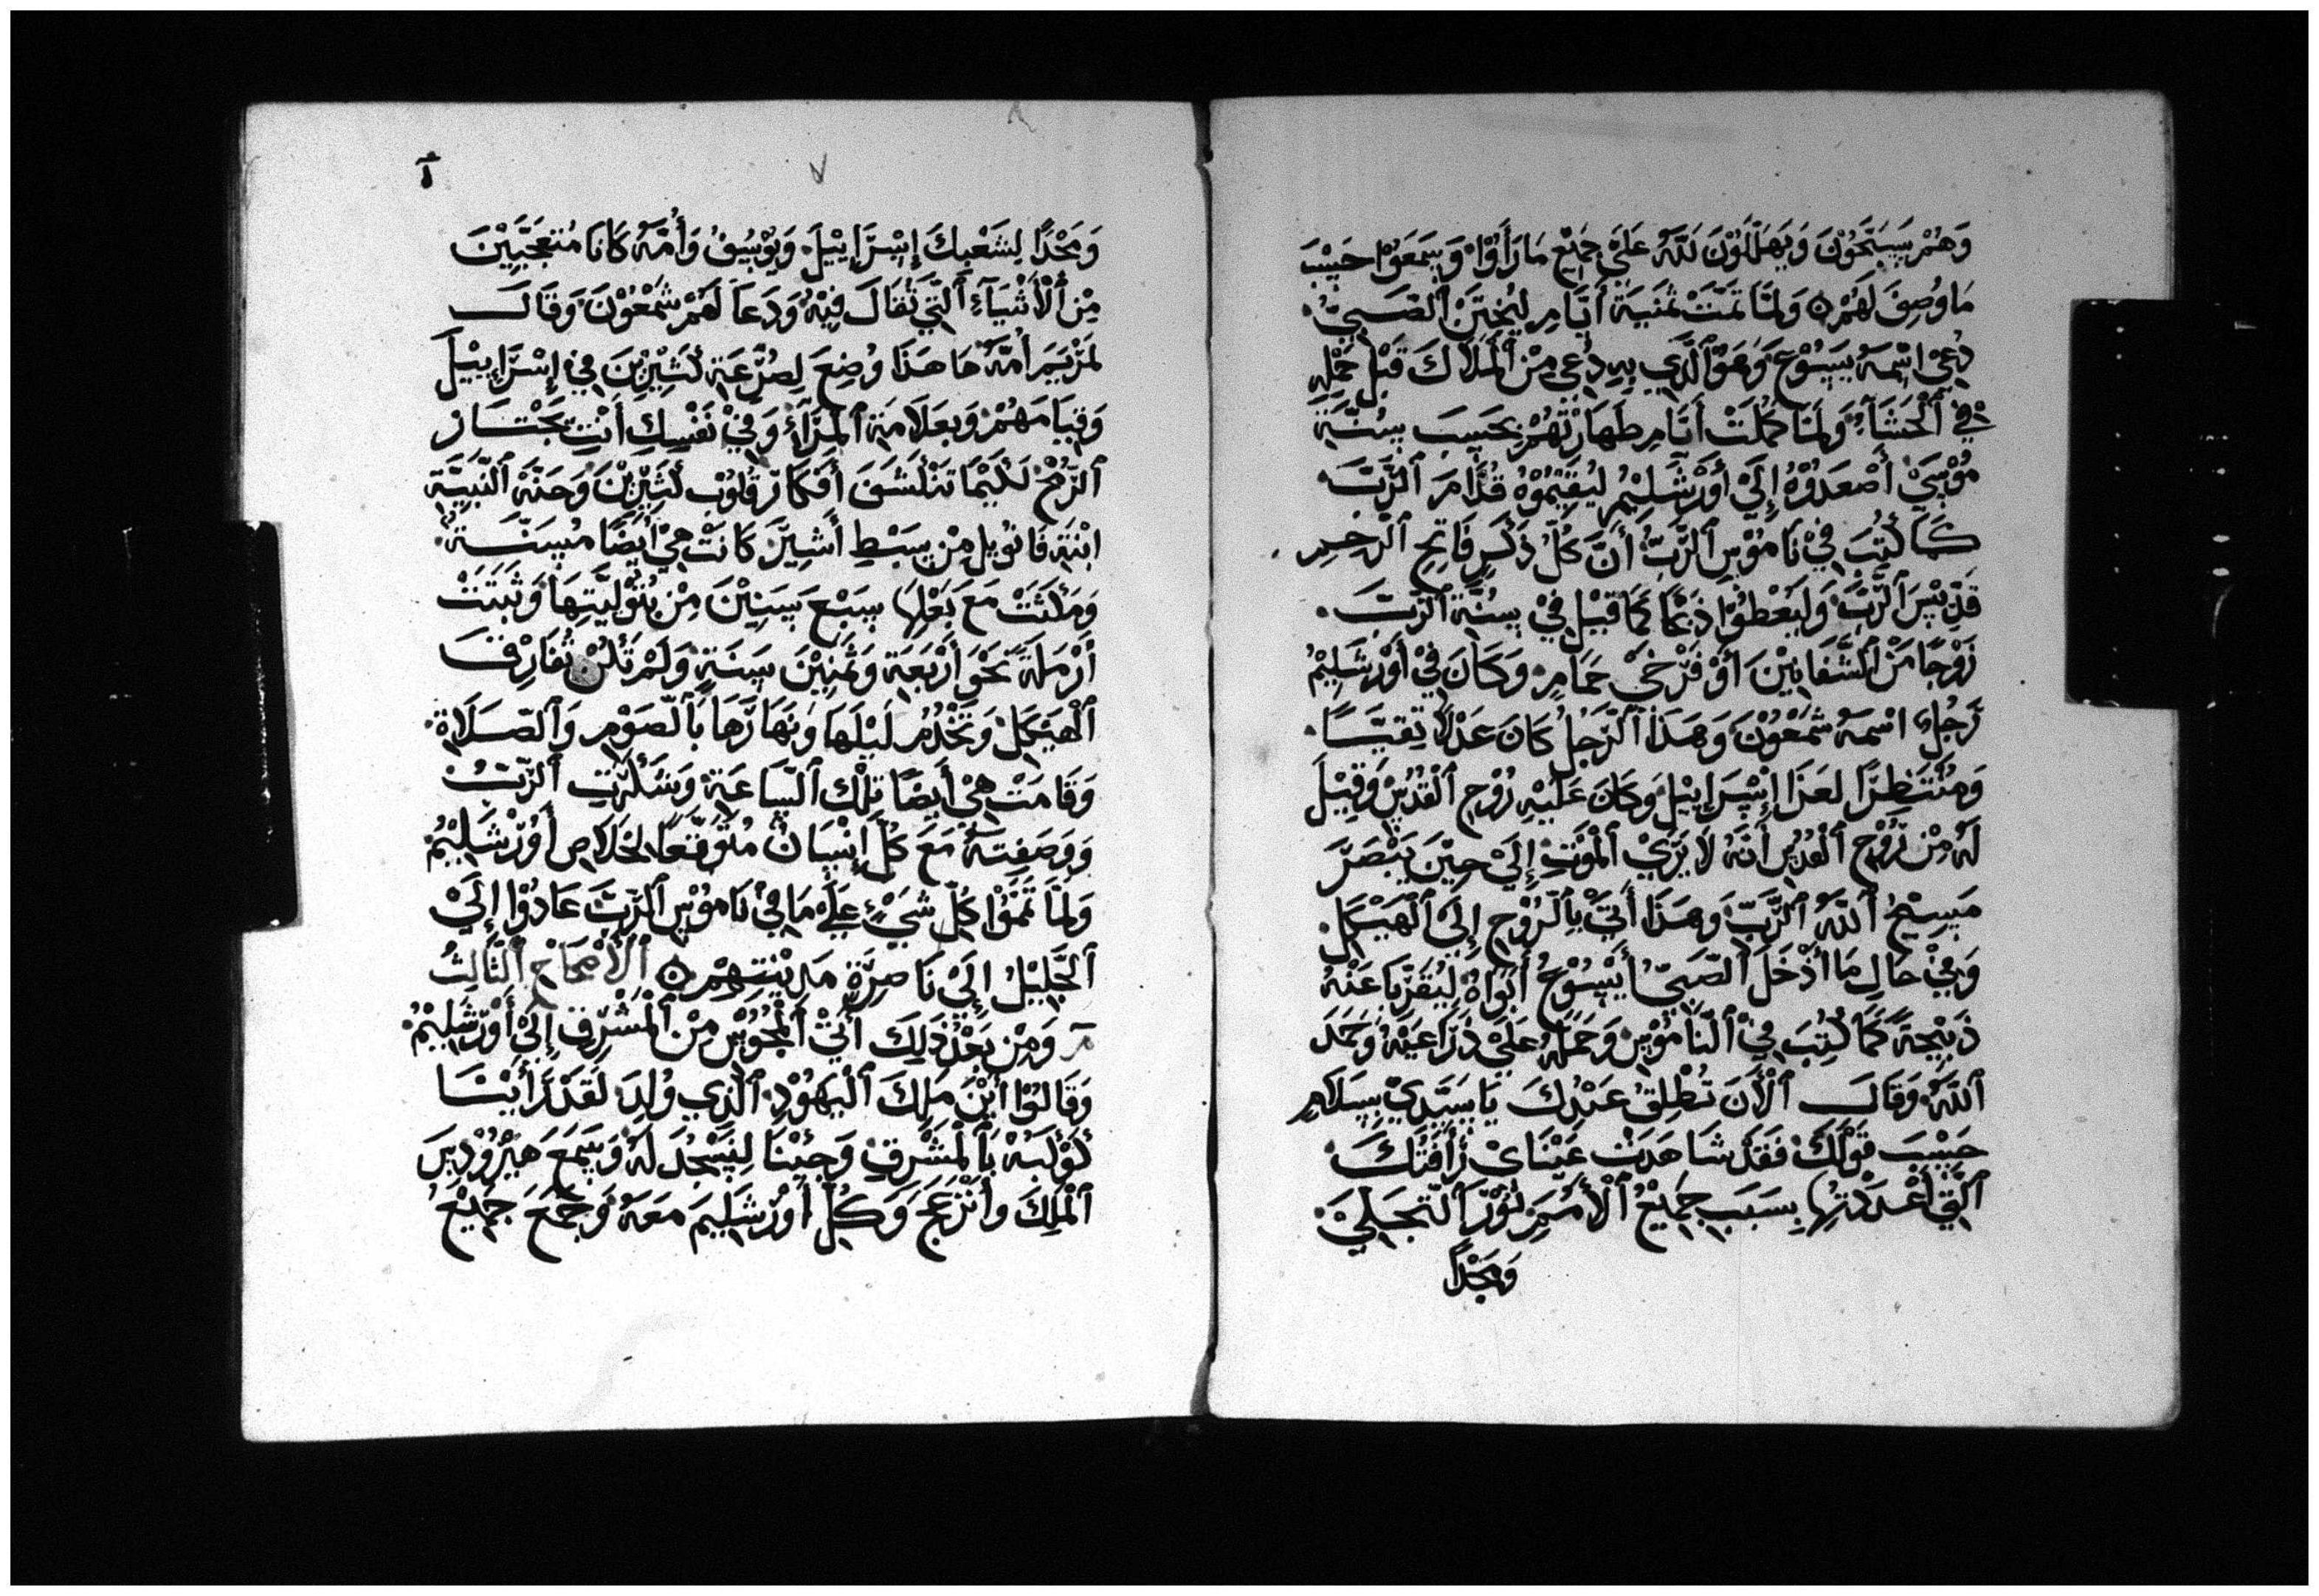 وَهُمْ يُسَبِّحُوْنَ وَيُهَلِّلُوْنَ لِلَّهِ عَلَيْ جَمِيْعِ مَا رَأَوْا وَسَمَعَوْا حَسَبَ
مَا وُصِفَ لَهُمْ ۞ وَلَمَّا تَمَّتْ ثَمَنِيَةَ أَيَّامِ لِيُخْتَنَ ٱلصَّبِيُّ
دُعِيَ اسْمَهُ يَسُوْعَ وَهُوَ ٱلَّذِي بِهِ دُعِي مِنَ ٱلْمَلَاكَ قَبْلَ حَمْلِهِ
فِيْ ٱلْحَشَآءِ وَلَمَّا كَمُلَتْ أَيَّامِ طَهَارَتُهُمْ بِحَسَبَ سُنَّةِ
مُوْسَيْ أَصْعَدُوْهُ إِلَيْ أُوْرَشَلِيْمُ لِيُقِيْمُوْهُ قُدَّامَ ٱلرَّبَّ
كَمَا كُتِبَ فِيْ نَامُوْسِ ٱلرَّبِّ أَنَّ كُلُّ ذَكَرِ فَاتِحِ ٱلرَّحِمِ
قِدِّيْسَ ٱلرَّبَّ وَلِيُعْطُوْا ذَبْحًا كَمَا قِيْلَ فِيْ سُنَّةِ ٱلرَّبَّ
زَوْجًا مَنْ ٱلشَّفَانِيْنَ أَوْ فَرْخَيْ حَمَامِ وَكَانَ فِيْ أُوْرَشَلِيْمُ
رَجُلٌ اسْمَهُ شَمْعُوْنَ وَهَذَا ٱلرَّجُلُ كَانَ عَدْلًا تَقِيَّا
وَمُنْتَظِرًا لِعَزَا إِسْرَايِيْلَ وَكَانَ عَلَيْهِ رُوْحِ ٱلْقُدُسْ وَقِيْلَ
لَهُ مِنْ رُوْحِ ٱلْقُدُسِ أَنَّهُ لَا يَرَيْ ٱلْمَوْتِ إِلَيْ حِيْنَ يَبْصَرَ
مَسِيْحُ ٱللَّهُ ٱلرَّبِّ وَهَذَا أَتَيْ بِٱلرُّوْحِ إِلَيْ ٱلْهَيْكَلِ
وَفِيْ حَالِ مَا أَدْخَلَ ٱلصَّبِيُّ أَيَسُوْعُ أَبَوَاهُ لِيُقَرِّبَا عَنْهُ
ذَبِيْحَةً كَمَا كُتِبَ فِيْ ٱلنَّامُوْسِ وَحَمَلَهُ عَلَيْ ذِرَاعَيْهِ وَحَمَدَ
ٱللَّهَ وَقَالَ ٱلْأَنَ تُطْلِقُ عَبْدَكَ يَا سَيِّدِيْ بِسَلَامِ
حَسَبَ قَوْلَكَ فَقَدْ شَاهَدَتْ عَيْنَايْ رَأْفَتَكَ
ٱلَّتِي أَعْدَدْتَهَا بِسَبَبِ جَمِيْعُ ٱلْأُمَمِ نُوْرَ ٱلتَّجَلِّيْ
وَمَجْدًا
أ
٧
وَمَجْدًا لِشَعْبِكَ إِسْرَايِيْلَ وَيُوْسِيْفُ وَأُمُّهُ كَانَا مُتَعَجِّبِيْنَ
مِنْ ٱلْأَشْيَآءِ ٱلَّتِي تُقَالَ فِيْهِ وَدَعَا لَهُمْ شَمْعُوْنَ وَقَالَ
لِمَرْيَمَ أُمَّهُ هَا هَذَا وُضِعَ لِصُرْعَةِ كَثِيْرِيْنَ فِيْ إِسْرَايِيْلَ
وَقِيَامَهُمْ وَبِعَلَامَةِ ٱلْمِرَآءِ وَفِيْ نَفْسِكِ أَنْتِ يَجْتَازُ
ٱلرُّمْحُ لِكَيْمَا تَنْكَشَفَ أَفْكَارَ قُلُوْبَ كَثِيْرِيْنَ وَحَنَّةُ ٱلنَّبِيَّةَ
ابْنَةِ فَانُوِيلِ مِنْ سِبْطِ أَشِيْرَ كَانَتْ هِيْ أَيْضًا مُسِنَّةُ
وَمَكَثَتْ مَعَ بَعْلِهَا سَبْعَ سِنِيْنَ مِنْ بُتُوْلِيَّتِهَا وَثَبَتَتْ
أَرْمَلَةً نَحْوَ أَرْبَعَةِ وَثَمَنِيْنَ سَنَةٍ وَلَمْ تَكُنْ تُفَارِقُ
ٱلْهَيْكَلِ وَتَخْدُمُ لَيْلَهَا وَنَهَارَهَا بِٱلصَّوْمِ وَٱلصَّلَاةِ
وَقَامَتْ هِيْ أَيْضًا تِلْكَ ٱلسَّاعَةِ وَشَكَرَتِ ٱلرَّبُّ
وَوَصَفَتَهُ مَعَ كُلِّ إِنْسَانٌ مُتَوَقِّعًا لِخَلَاصِ أُوْرَشَلِيْمُ
وَلَمَّا تَمَّوْا كُلَّ شَيْءٍ عَلَي مَا فِيْ نَامُوْسِ ٱلرَّبِّ عَادُوْا إِلَيْ
ٱلْجَلِيْلُ إِلَيْ نَاصِرَةِ مَدِيْنَتِهِمْ ۞ ٱلْأَصْحَاحِ ٱلثَّالِثُ
وَمِنْ بَعْدْ ذَلِكَ أَتَيْ ٱلْمَجُوْسِ مِنْ ٱلْمَشْرِقِ إِلَيْ أُوْرَشَلِيْمُ
وَقَالُوْا أَيْنَ مَلِكَ ٱلْيَهُوْدِ ٱلَّذِي وُلِدَ لَقَدْ رَأَيْنَا
كَوْكَبَهُ بِٱلْمَشْرِقِ وَجِئْنَا لِنَسْجُدَ لَهُ وَسَمِعَ هِيْرُوْدِسَ
ٱلْمَلِكَ وَأَنْزَعَجَ وَكُلُّ أُوْرَشَلِيْمَ مَعَهُ وَجَمَعَ جَمِيْعُ